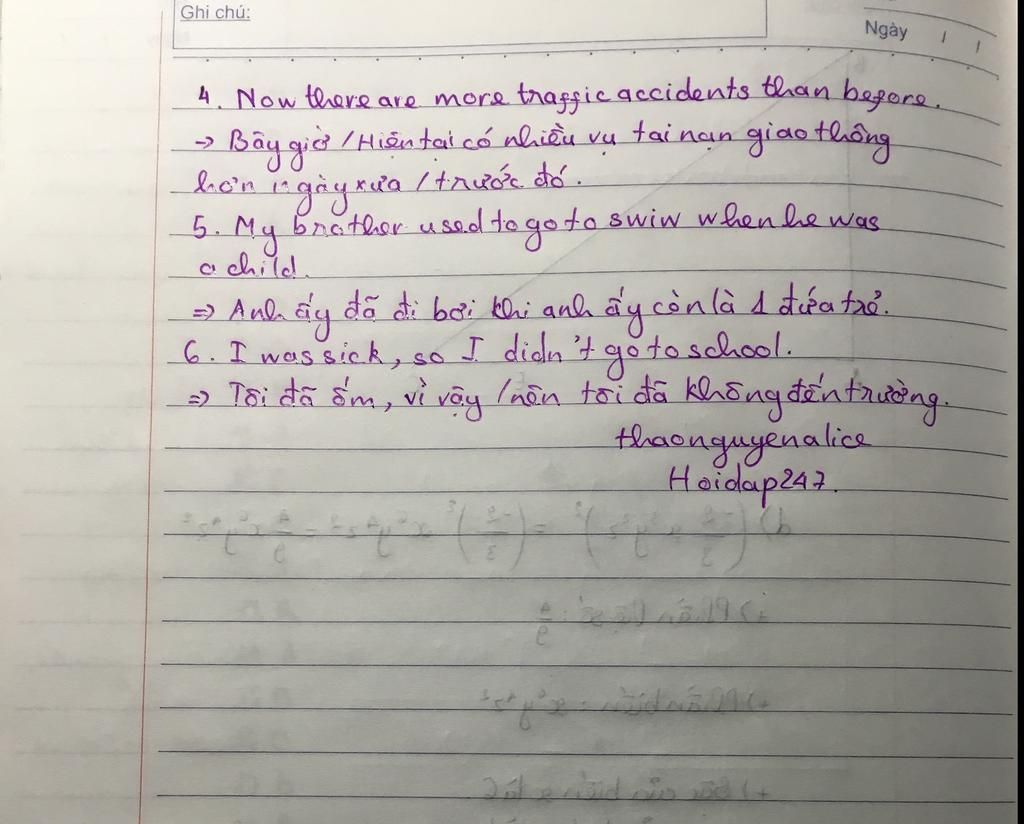 Ghi chú:
Ngày / /
4. Now there are more traffic accidents than before.
→ Bây giờ / Hiện tại có nhiều vụ tai nạn giao thông
hơn ngày xưa / trước đó.
5. My brother used to go to swiw when he was
a child.
⇒ Anh ấy đã đi bơi khi anh ấy còn là 1 đứa trẻ.
6. I was sick, so I didn't go to school.
⇒ Tôi đã ốm, vì vậy / nên tôi đã không đến trường.
thaonguyenalice
Hoidap247.